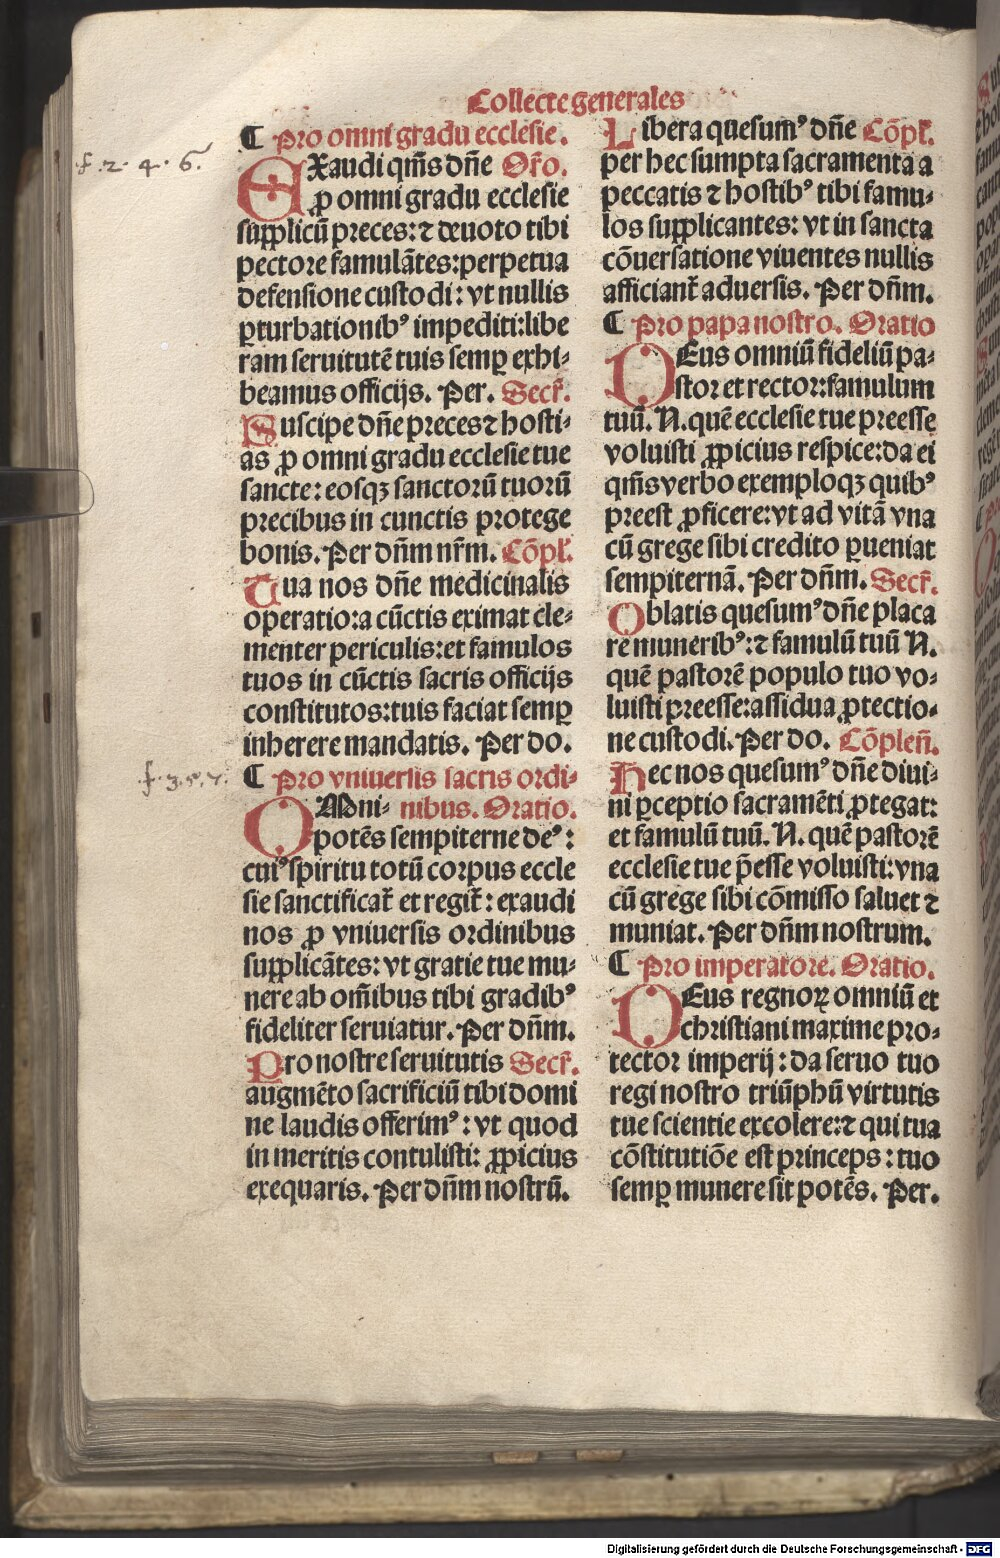 Collecte generales
¶ Pro omni gradu ecclesie.
f. 2. 4. 6.
EXaudi qm̄s dn̄e Or̄o.
ꝓ omni gradu ecclesie
supplicū preces: ⁊ deuoto tibi
pectore famulātes: perpetua
defensione custodi: vt nullis
ꝑturbationibꝰ impediti: libe
ram seruitutē tuis semꝑ exhi-
beamus officijs. Per. Secr̄.
Suscipe dn̄e preces ⁊ hosti-
as ꝓ omni gradu ecclesie tue
sancte: eosqꝫ sanctorū tuorū
precibus in cunctis protege
bonis. Per dn̄m nr̄m. Cōpl̄.
Tua nos dn̄e medicinalis
operatio: a cūctis eximat cle-
menter periculis: et famulos
tuos in cūctis sacris officijs
constitutos: tuis faciat semꝑ
inherere mandatis. Per do.
f. 3. 5. 7.
¶ Pro vniuersis sacris ordi-
OMni- nibus. Oratio.
potēs sempiterne deꝰ:
cuiꝰ spiritu totū corpus eccle
sie sanctificat̄ et regit̄: exaudi
nos ꝓ vniuersis ordinibus
supplicātes: vt gratie tue mu-
nere ab om̄ibus tibi gradibꝰ
fideliter seruiatur. Per dn̄m.
Pro nostre seruitutis Secr̄.
augmēto sacrificiū tibi domi
ne laudis offerimꝰ: vt quod
in meritis contulisti: ꝓpicius
exequaris. Per dn̄m nostrū.
Libera quesumꝰ dn̄e Cōpl̄.
per hec sumpta sacramenta a
peccatis ⁊ hostibꝰ tibi famu-
los supplicantes: vt in sancta
cōuersatione viuentes nullis
afficiant̄ aduersis. Per dn̄m.
¶ Pro papa nostro. Oratio
DEus omniū fideliū pa-
stor et rector: famulum
tuū. N. quē ecclesie tue preesse
voluisti ꝓpicius respice: da ei
qm̄s verbo exemploqꝫ quibꝰ
preest ꝓficere: vt ad vitā vna
cū grege sibi credito ꝑueniat
sempiternā. Per dn̄m. Secr̄.
Oblatis quesumꝰ dn̄e placa
re muneribꝰ: ⁊ famulū tuū N.
quē pastorē populo tuo vo-
luisti preesse: assidua ꝓtectio-
ne custodi. Per do. Cōplen̄.
Hec nos quesumꝰ dn̄e diui-
ni ꝑceptio sacramēti ꝓtegat:
et famulū tuū. N. quē pastorē
ecclesie tue p̄esse voluisti: vna
cū grege sibi cōmisso saluet ⁊
muniat. Per dn̄m nostrum.
¶ Pro imperatore. Oratio.
DEus regnoꝝ omniū et
christiani maxime pro-
tector imperij: da seruo tuo
regi nostro triūphū virtutis
tue scientie excolere: ⁊ qui tua
cōstitutiōe est princeps: tuo
semꝑ munere sit potēs. Per.
Digitalisierung gefördert durch die Deutsche Forschungsgemeinschaft - DFG